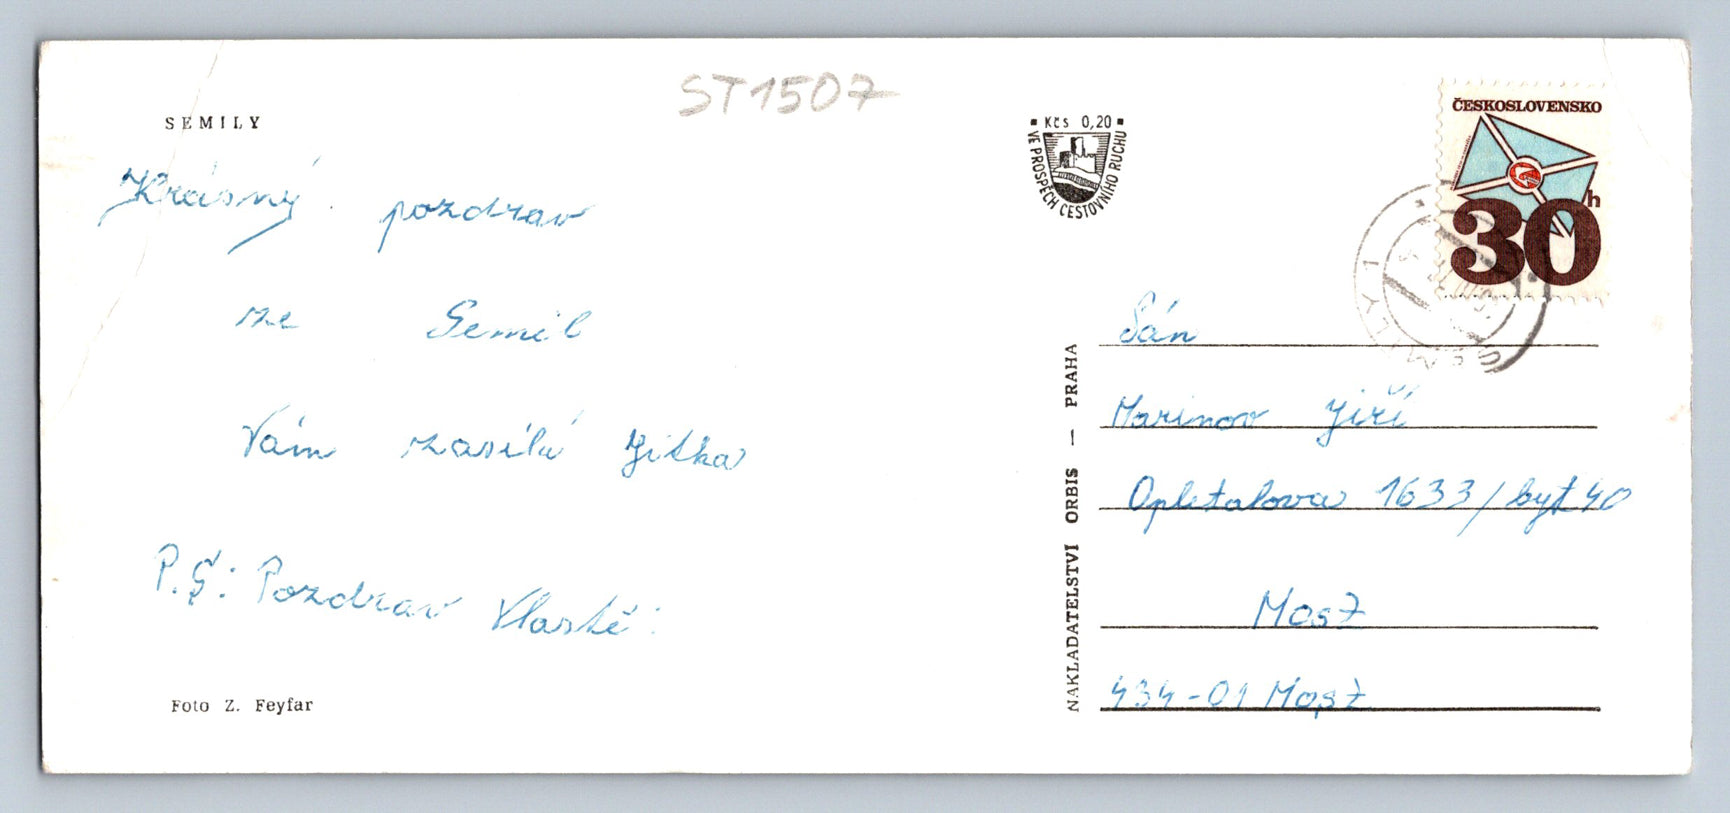 ST1507
SEMILY
Krásný pozdrav
ze Semil
Vám zasílá Jitka
P.S: Pozdrav Vlastě.
Foto Z. Feyfar
Kčs 0,20
VE PROSPĚCH CESTOVNÍHO RUCHU
NAKLADATELSTVÍ ORBIS — PRAHA
ČESKOSLOVENSKO
30 h
SEMILY 1
Pán
Marinov Jiří
Opletalova 1633/byt 40
Most
434-01 Most